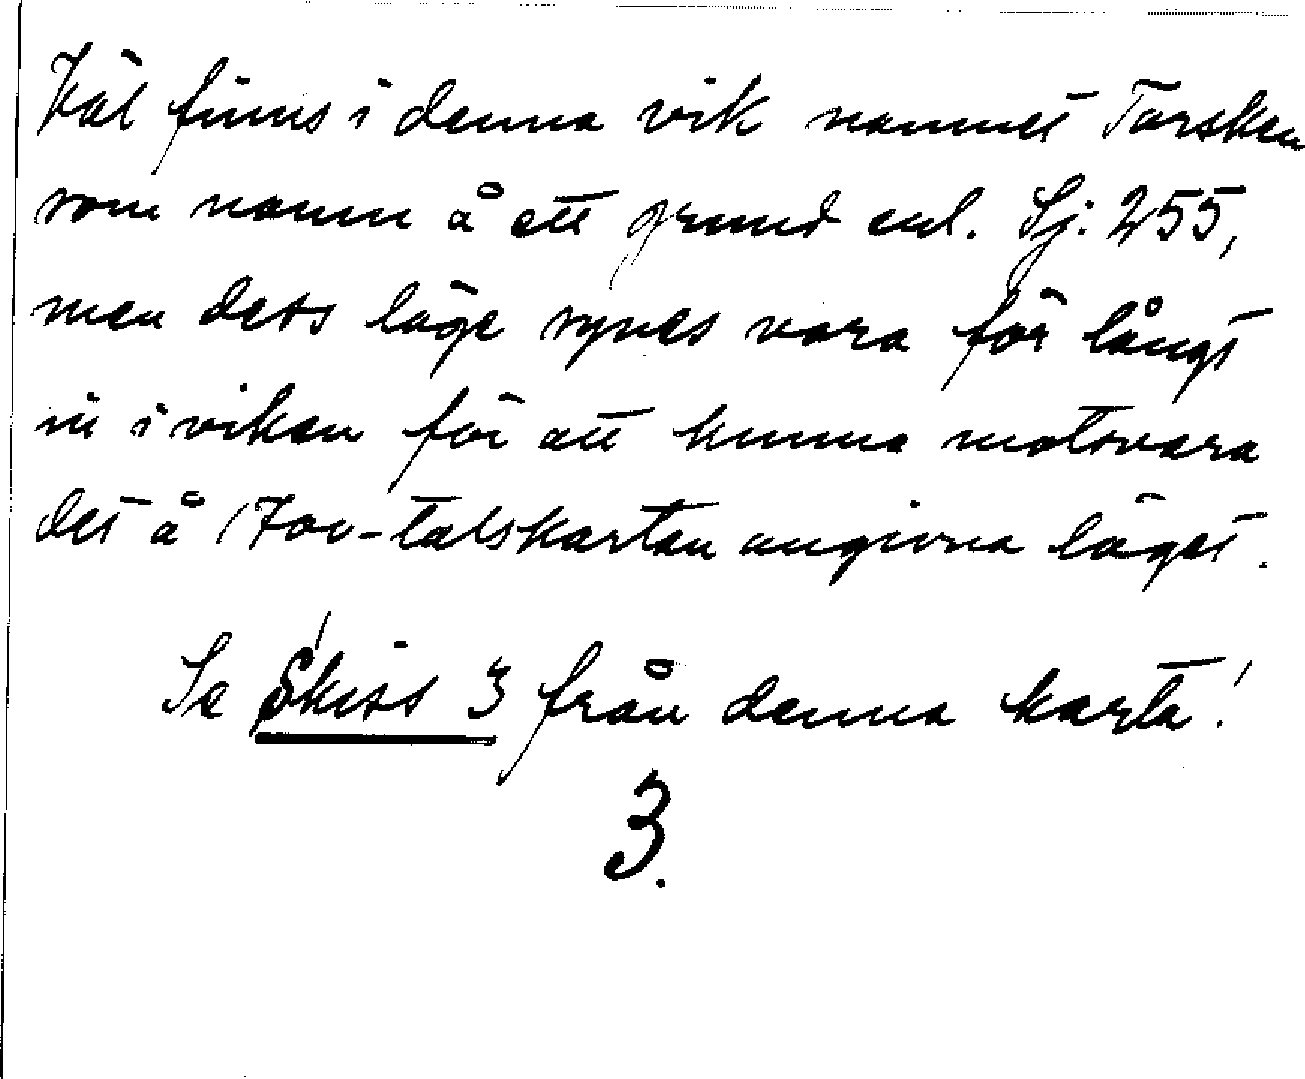 Väl finns i denna vik namnet Torsken
som namn å ett grund enl. Sj: 255,
men dess läge synes vara för långt
in i viken för att kunna motsvara
det å 1700-talskartan angivna läget.
Se Skiss 3 från denna karta!
3.